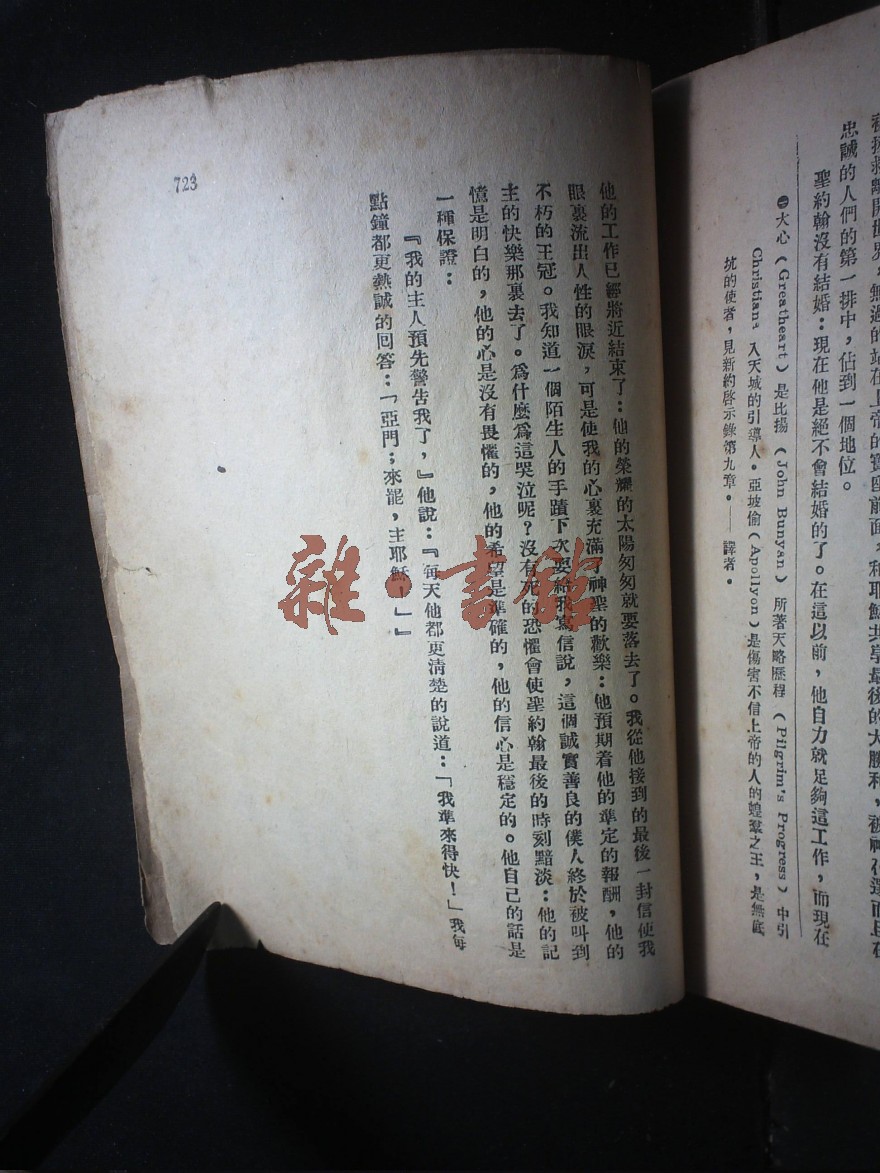 忠誠的人們的第一排中，佔到一個地位。
聖約翰沒有結婚：現在他是絕不會結婚的了。在這以前，他自力就足夠這工作，而現在
㊀大心（Greatheart）是比揚（John Bunyan）所著天路歷程（Pilgrim's Progress）中引
Christian 入天城的引導人。亞坡倫（Apollyon）是傷害不信上帝的人的蝗羣之王，是無底
坑的使者，見新約啓示錄第九章。——譯者。
他的工作已經將近結束了：他的榮耀的太陽匆匆就要落去了。我從他接到的最後一封信使我
眼裏流出人性的眼淚，可是使我的心裏充滿神聖的歡樂：他預期着他的準定的報酬，他的
不朽的王冠。我知道一個陌生人的手蹟下次要給我寫信說，這個誠實善良的僕人終於被叫到
主的快樂那裏去了。爲什麼爲這哭泣呢？沒有死的恐懼會使聖約翰最後的時刻黯淡：他的記
憶是明白的，他的心是沒有畏懼的，他的希望是準確的，他的信心是穩定的。他自己的話是
一種保證：
『我的主人預先警告我了，』他說：『每天他都更清楚的說道：「我準來得快！」我每
點鐘都更熱誠的回答：「亞門；來罷，主耶穌！」』
723
雜·書館